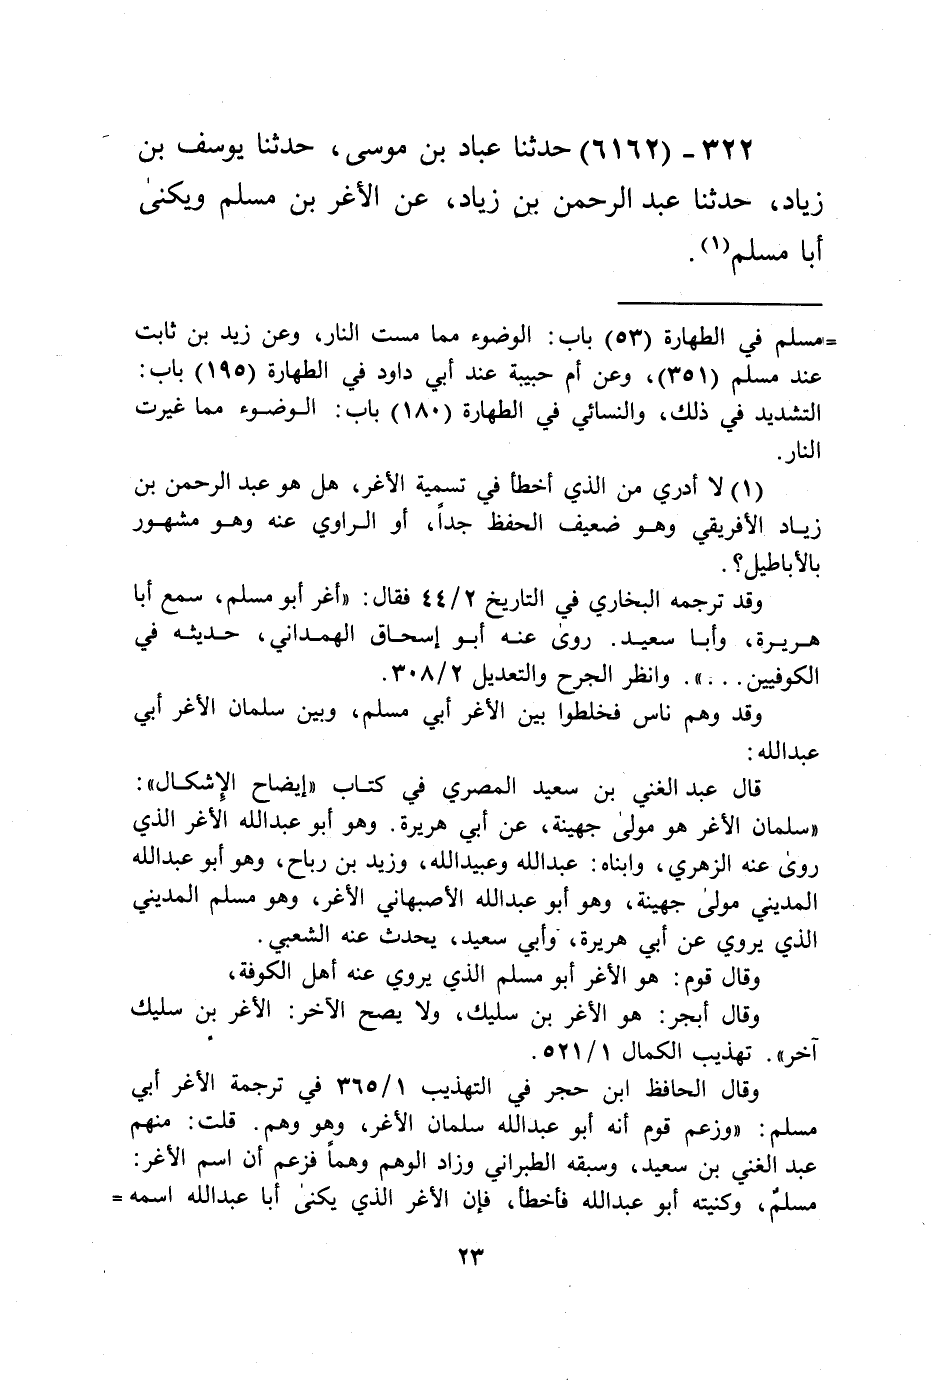 ٣٢٢ - (٦١٦٢) حدثنا عباد بن موسى، حدثنا يوسف بن
زياد، حدثنا عبد الرحمن بن زياد، عن الأغر بن مسلم ويكنىٰ
أبا مسلم(١).
=مسلم في الطهارة (٥٣) باب: الوضوء مما مست النار، وعن زيد بن ثابت
عند مسلم (٣٥١)، وعن أم حبيبة عند أبي داود في الطهارة (١٩٥) باب:
التشديد في ذلك، والنسائي في الطهارة (١٨٠) باب: الوضوء مما غيرت
النار.
(١) لا أدري من الذي أخطأ في تسمية الأغر، هل هو عبد الرحمن بن
زياد الأفريقي وهو ضعيف الحفظ جداً، أو الراوي عنه وهو مشهور
بالأباطيل؟.
وقد ترجمه البخاري في التاريخ ٤٤/٢ فقال: «أغر أبو مسلم، سمع أبا
هريرة، وأبا سعيد. روىٰ عنه أبو إسحاق الهمداني، حديثه في
الكوفيين...». وانظر الجرح والتعديل ٣٠٨/٢.
وقد وهم ناس فخلطوا بين الأغر أبي مسلم، وبين سلمان الأغر أبي
عبدالله:
قال عبد الغني بن سعيد المصري في كتاب «إيضاح الإشكال»:
«سلمان الأغر هو مولىٰ جهينة، عن أبي هريرة. وهو أبو عبدالله الأغر الذي
روىٰ عنه الزهري، وابناه: عبدالله وعبيدالله، وزيد بن رباح، وهو أبو عبدالله
المديني مولىٰ جهينة، وهو أبو عبدالله الأصبهاني الأغر، وهو مسلم المديني
الذي يروي عن أبي هريرة، وأبي سعيد، يحدث عنه الشعبي.
وقال قوم: هو الأغر أبو مسلم الذي يروي عنه أهل الكوفة،
وقال أبجر: هو الأغر بن سليك، ولا يصح الآخر: الأغر بن سليك
آخر». تهذيب الكمال ٥٢١/١.
وقال الحافظ ابن حجر في التهذيب ٣٦٥/١ في ترجمة الأغر أبي
مسلم: «وزعم قوم أنه أبو عبدالله سلمان الأغر، وهو وهم. قلت: منهم
عبد الغني بن سعيد، وسبقه الطبراني وزاد الوهم وهماً فزعم أن اسم الأغر:
مسلمٌ، وكنيته أبو عبدالله فأخطأ، فإن الأغر الذي يكنىٰ أبا عبدالله اسمه =
٢٣